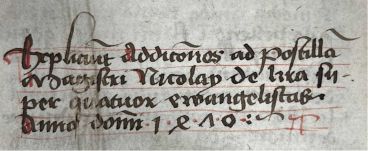 Expliciūt addicōnes ad postillā
Magistri Nicolay de lira su-
per quatuor ewangelistas
Anno domī · 1 · 8 · 1 · 0 ·